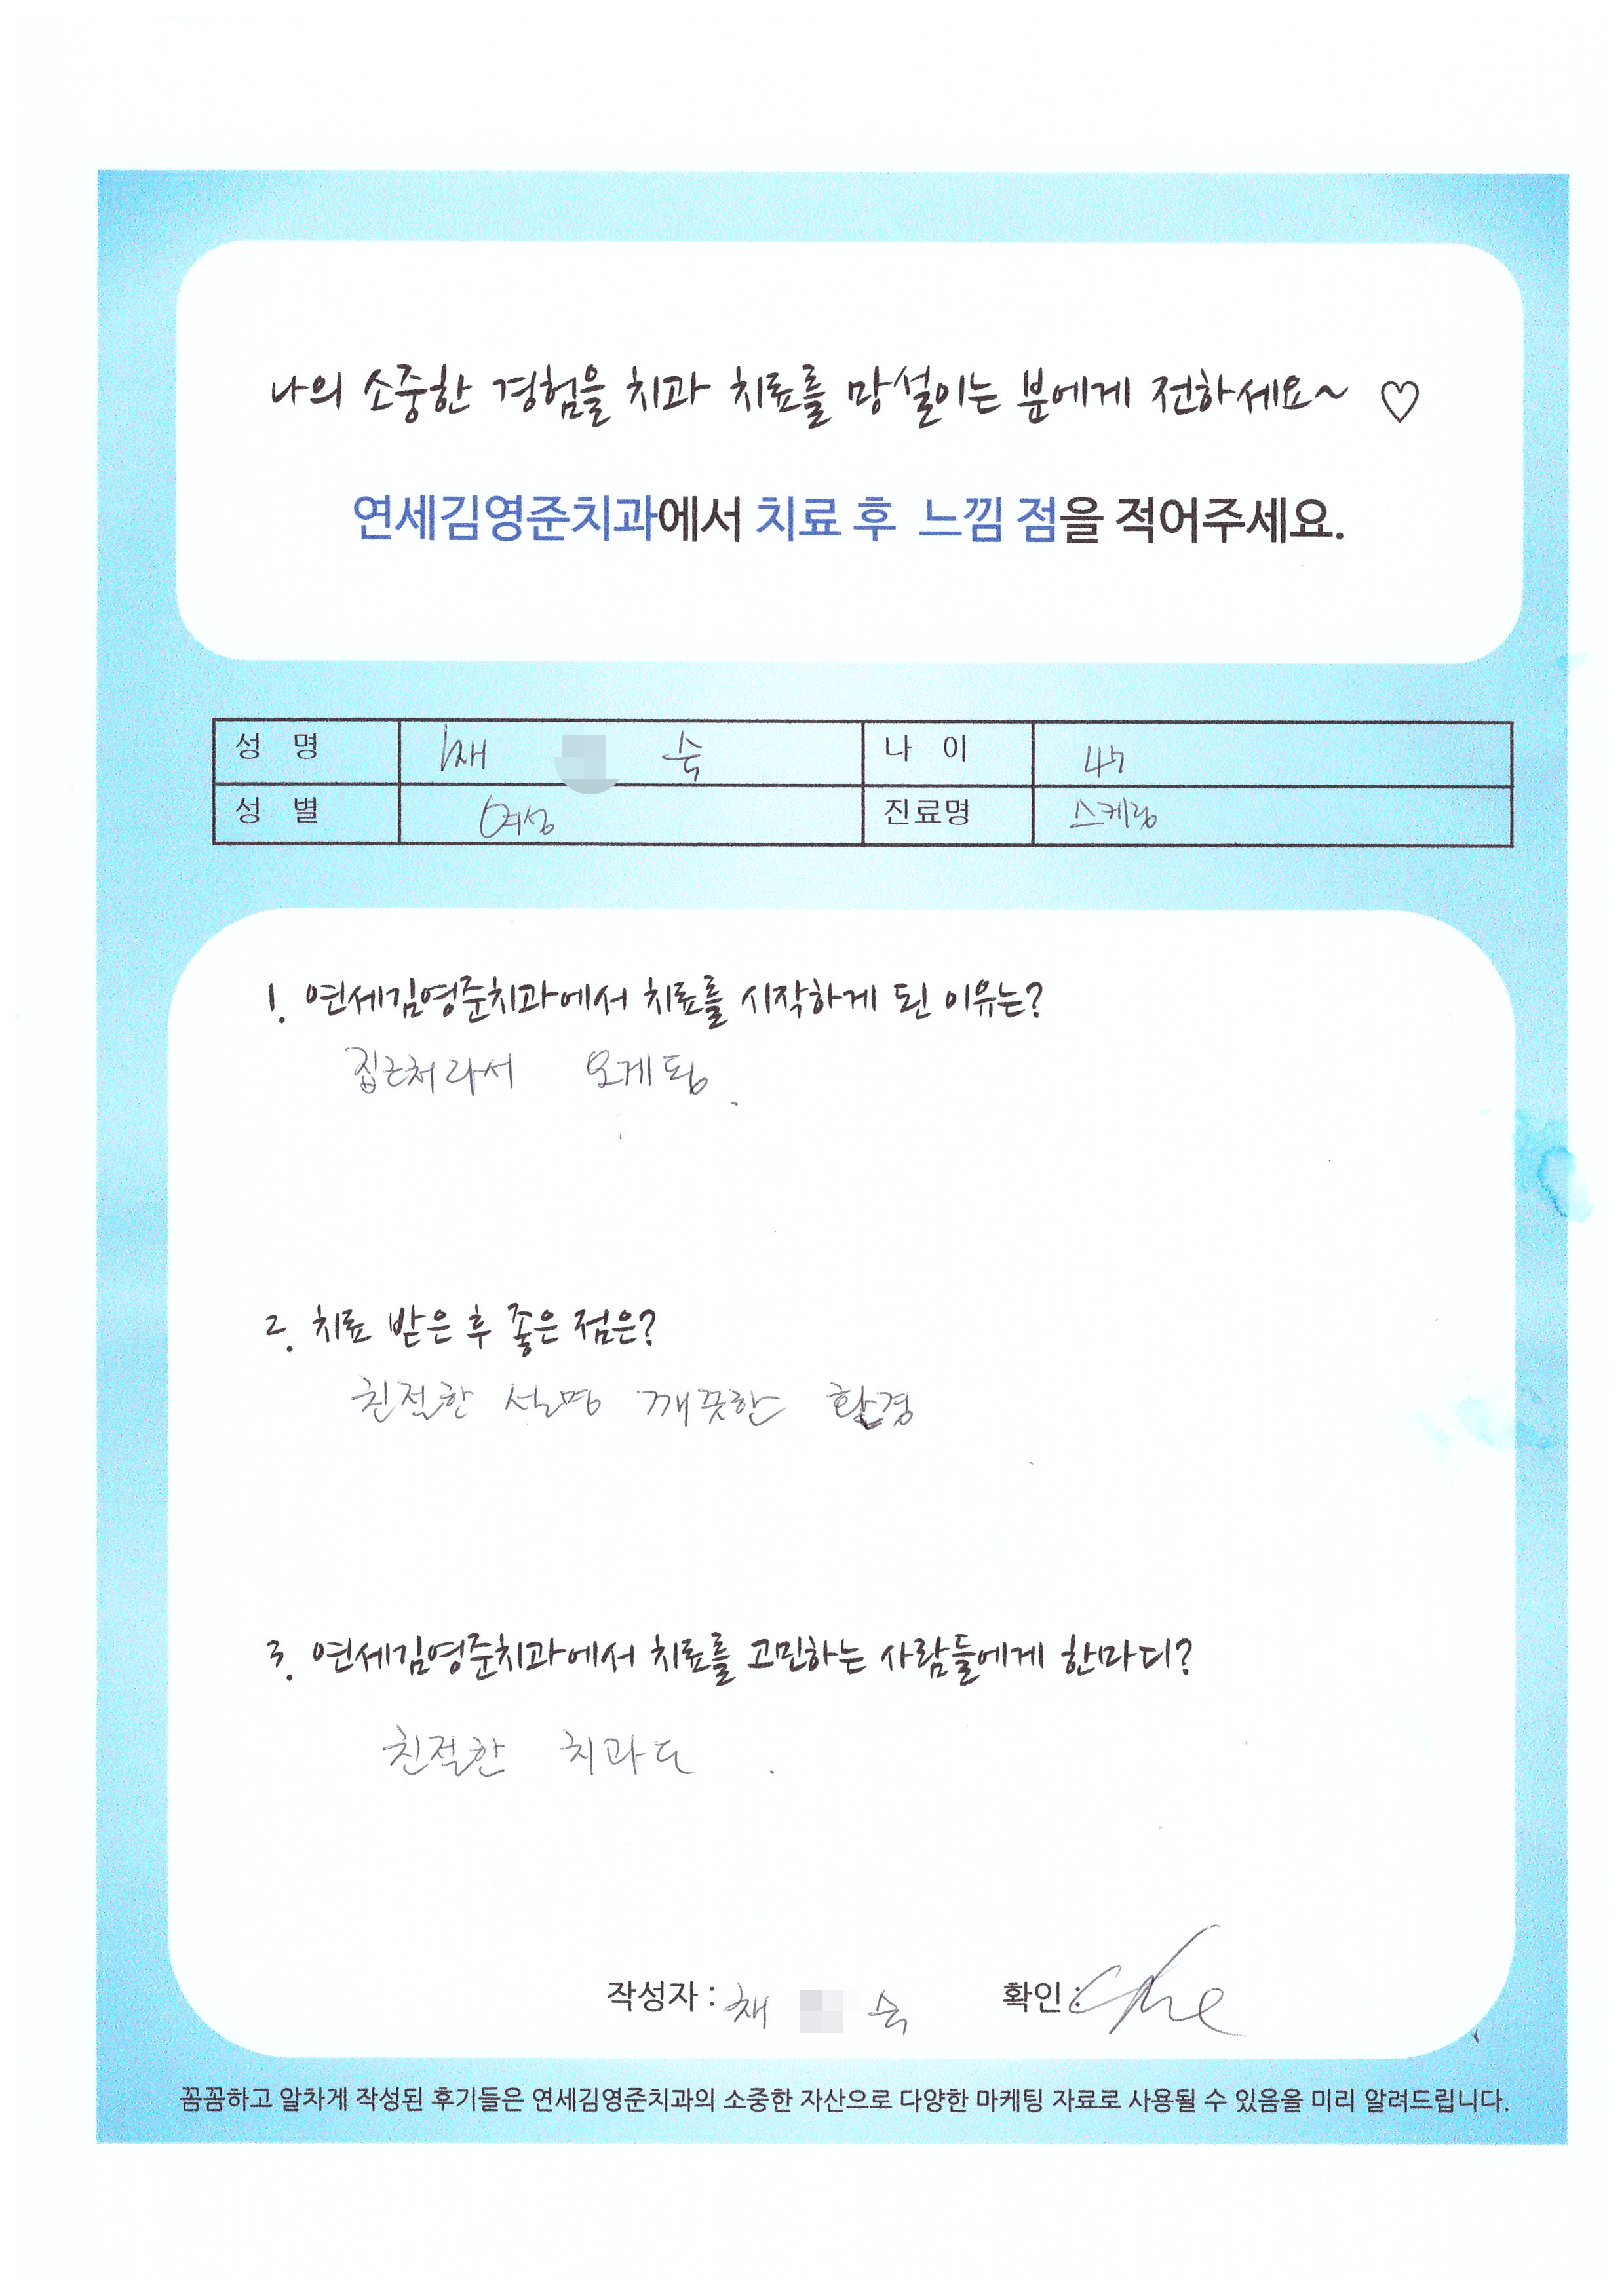 나의 소중한 경험을 치과 치료를 망설이는 분에게 전하세요~ ♡
연세김영준치과에서 치료 후 느낌 점을 적어주세요.
성 명 채 숙 나 이 47
성 별 여성 진료명 스케링
1. 연세김영준치과에서 치료를 시작하게 된 이유는?
집근처라서 오게됨.
2. 치료 받은 후 좋은 점은?
친절한 설명 깨끗한 환경
3. 연세김영준치과에서 치료를 고민하는 사람들에게 한마디?
친절한 치과
작성자 : 채 숙 확인 : Che
꼼꼼하고 알차게 작성된 후기들은 연세김영준치과의 소중한 자산으로 다양한 마케팅 자료로 사용될 수 있음을 미리 알려드립니다.